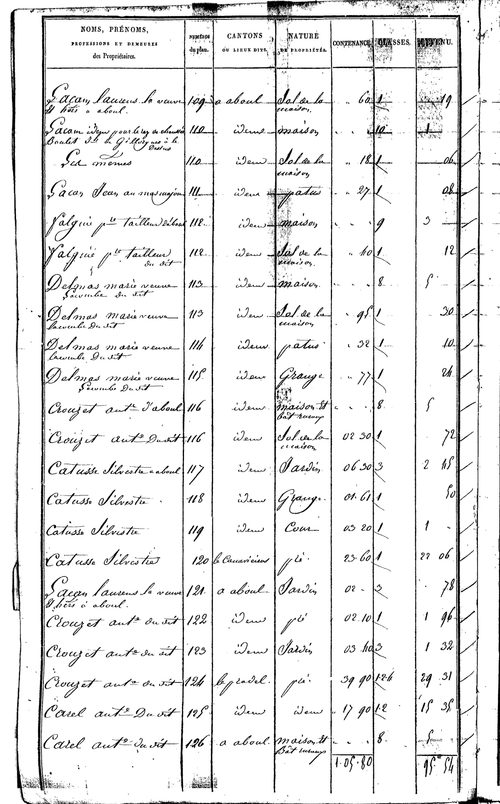 NOMS, PRÉNOMS, PROFESSIONS ET DEMEURES des Propriétaires. NUMÉROS du plan. CANTONS OU LIEUX DITS. NATURE DE PROPRIÉTÉS. CONTENANCE. CLASSES. REVENU.
Gacan laurens la veuve 109 a aboul Sol de la 60 1 19
et hers a aboul. maison
110 idem maison 10 1
Les mêmes 110 idem Sol de la 18 1 06
maison
Gacan Jean 111 idem patus 27 1 08
Falguié pre tailleur d'aboul 112 idem maison 9 3
Falguié pre tailleur 112 idem Sol de la 40 1 12
du dit maison
Delmas marie veuve 113 idem maison 8 5
Lacombe du dit
Delmas marie veuve 113 idem Sol de la 95 1 30
Lacombe du dit maison
Delmas marie veuve 114 idem patus 32 1 10
Lacombe du dit
Delmas marie veuve 115 idem Grange 77 1 24
Lacombe du dit
Crouzet ante d'aboul 116 idem maison et 8 5
Bât ruraux
Crouzet ante du dit 116 idem Sol de la 02 30 1 72
maison
Catusse Silvestre a aboul 117 idem Jardin 06 30 3 2 45
Catusse Silvestre 118 idem Grange 01 61 1 50
Catusse Silvestre 119 idem Cour 03 20 1 1
Catusse Silvestre 120 pré 23 60 1 22 06
Gacan laurens la veuve 121 a aboul Jardin 02 3 78
et hers à aboul.
Crouzet ante du dit 122 idem pré 02 10 1 1 96
Crouzet ante du dit 123 idem Jardin 03 40 3 1 32
Crouzet ante du dit 124 le pradel pré 39 90 1 2 6 29 31
Carel ante du dit 125 idem idem 17 90 1 2 15 35
Carel ante du dit 126 a aboul maison et 8 5
Bât ruraux
1 05 80 95 54